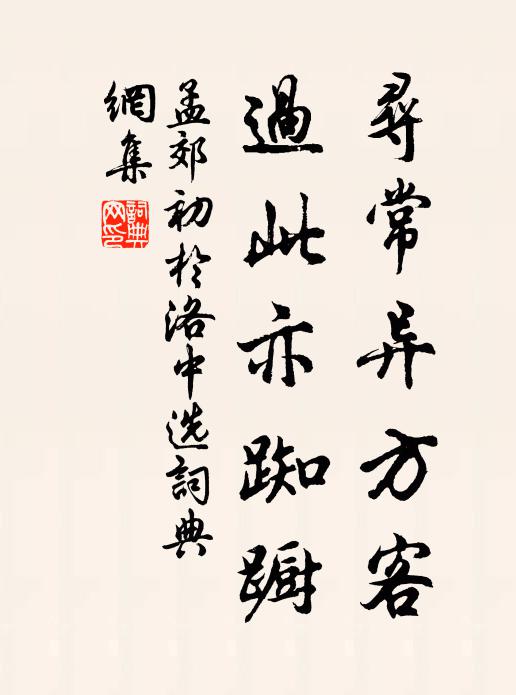 尋常异方客
過此亦踟蹰
孟郊初於洛中选詞典
網集
詞典網印